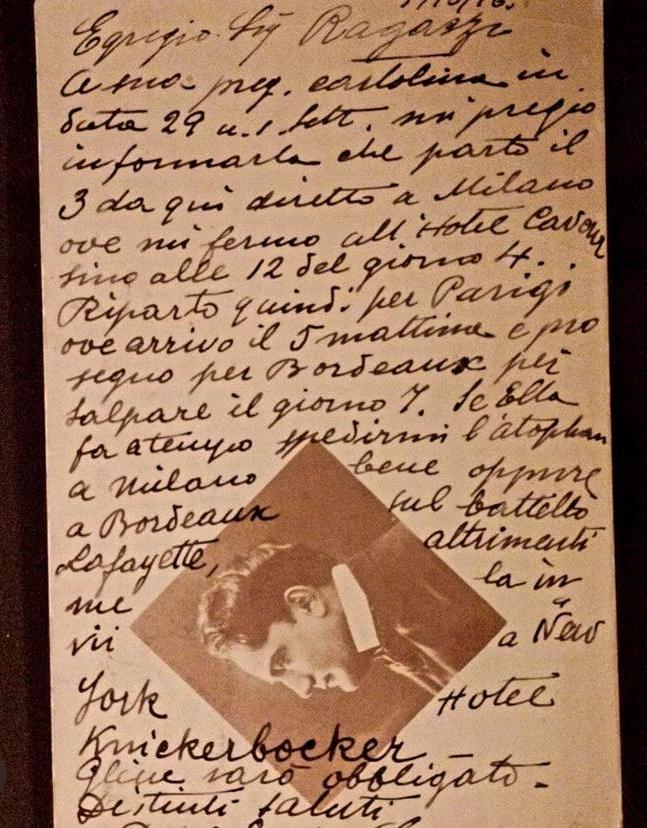 1/10/16.
Egregio Sig Ragazzi
A sua preg. cartolina in
data 29 u.s. Sett. mi pregio
informarla che parto il
3 da qui diretto a Milano
ove mi fermo all'Hotel Cavour
sino alle 12 del giorno 4.
Riparto quindi per Parigi
ove arrivo il 5 mattina e pro
seguo per Bordeaux per
salpare il giorno 7. Se Ella
fa a tempo spedirmi l'atophan
a Milano bene oppure
a Bordeaux sul battello
Lafayette, altrimenti
me la in
vii a New
York Hotel
Knickerbocker
Gliene sarò obbligato.
Distinti saluti